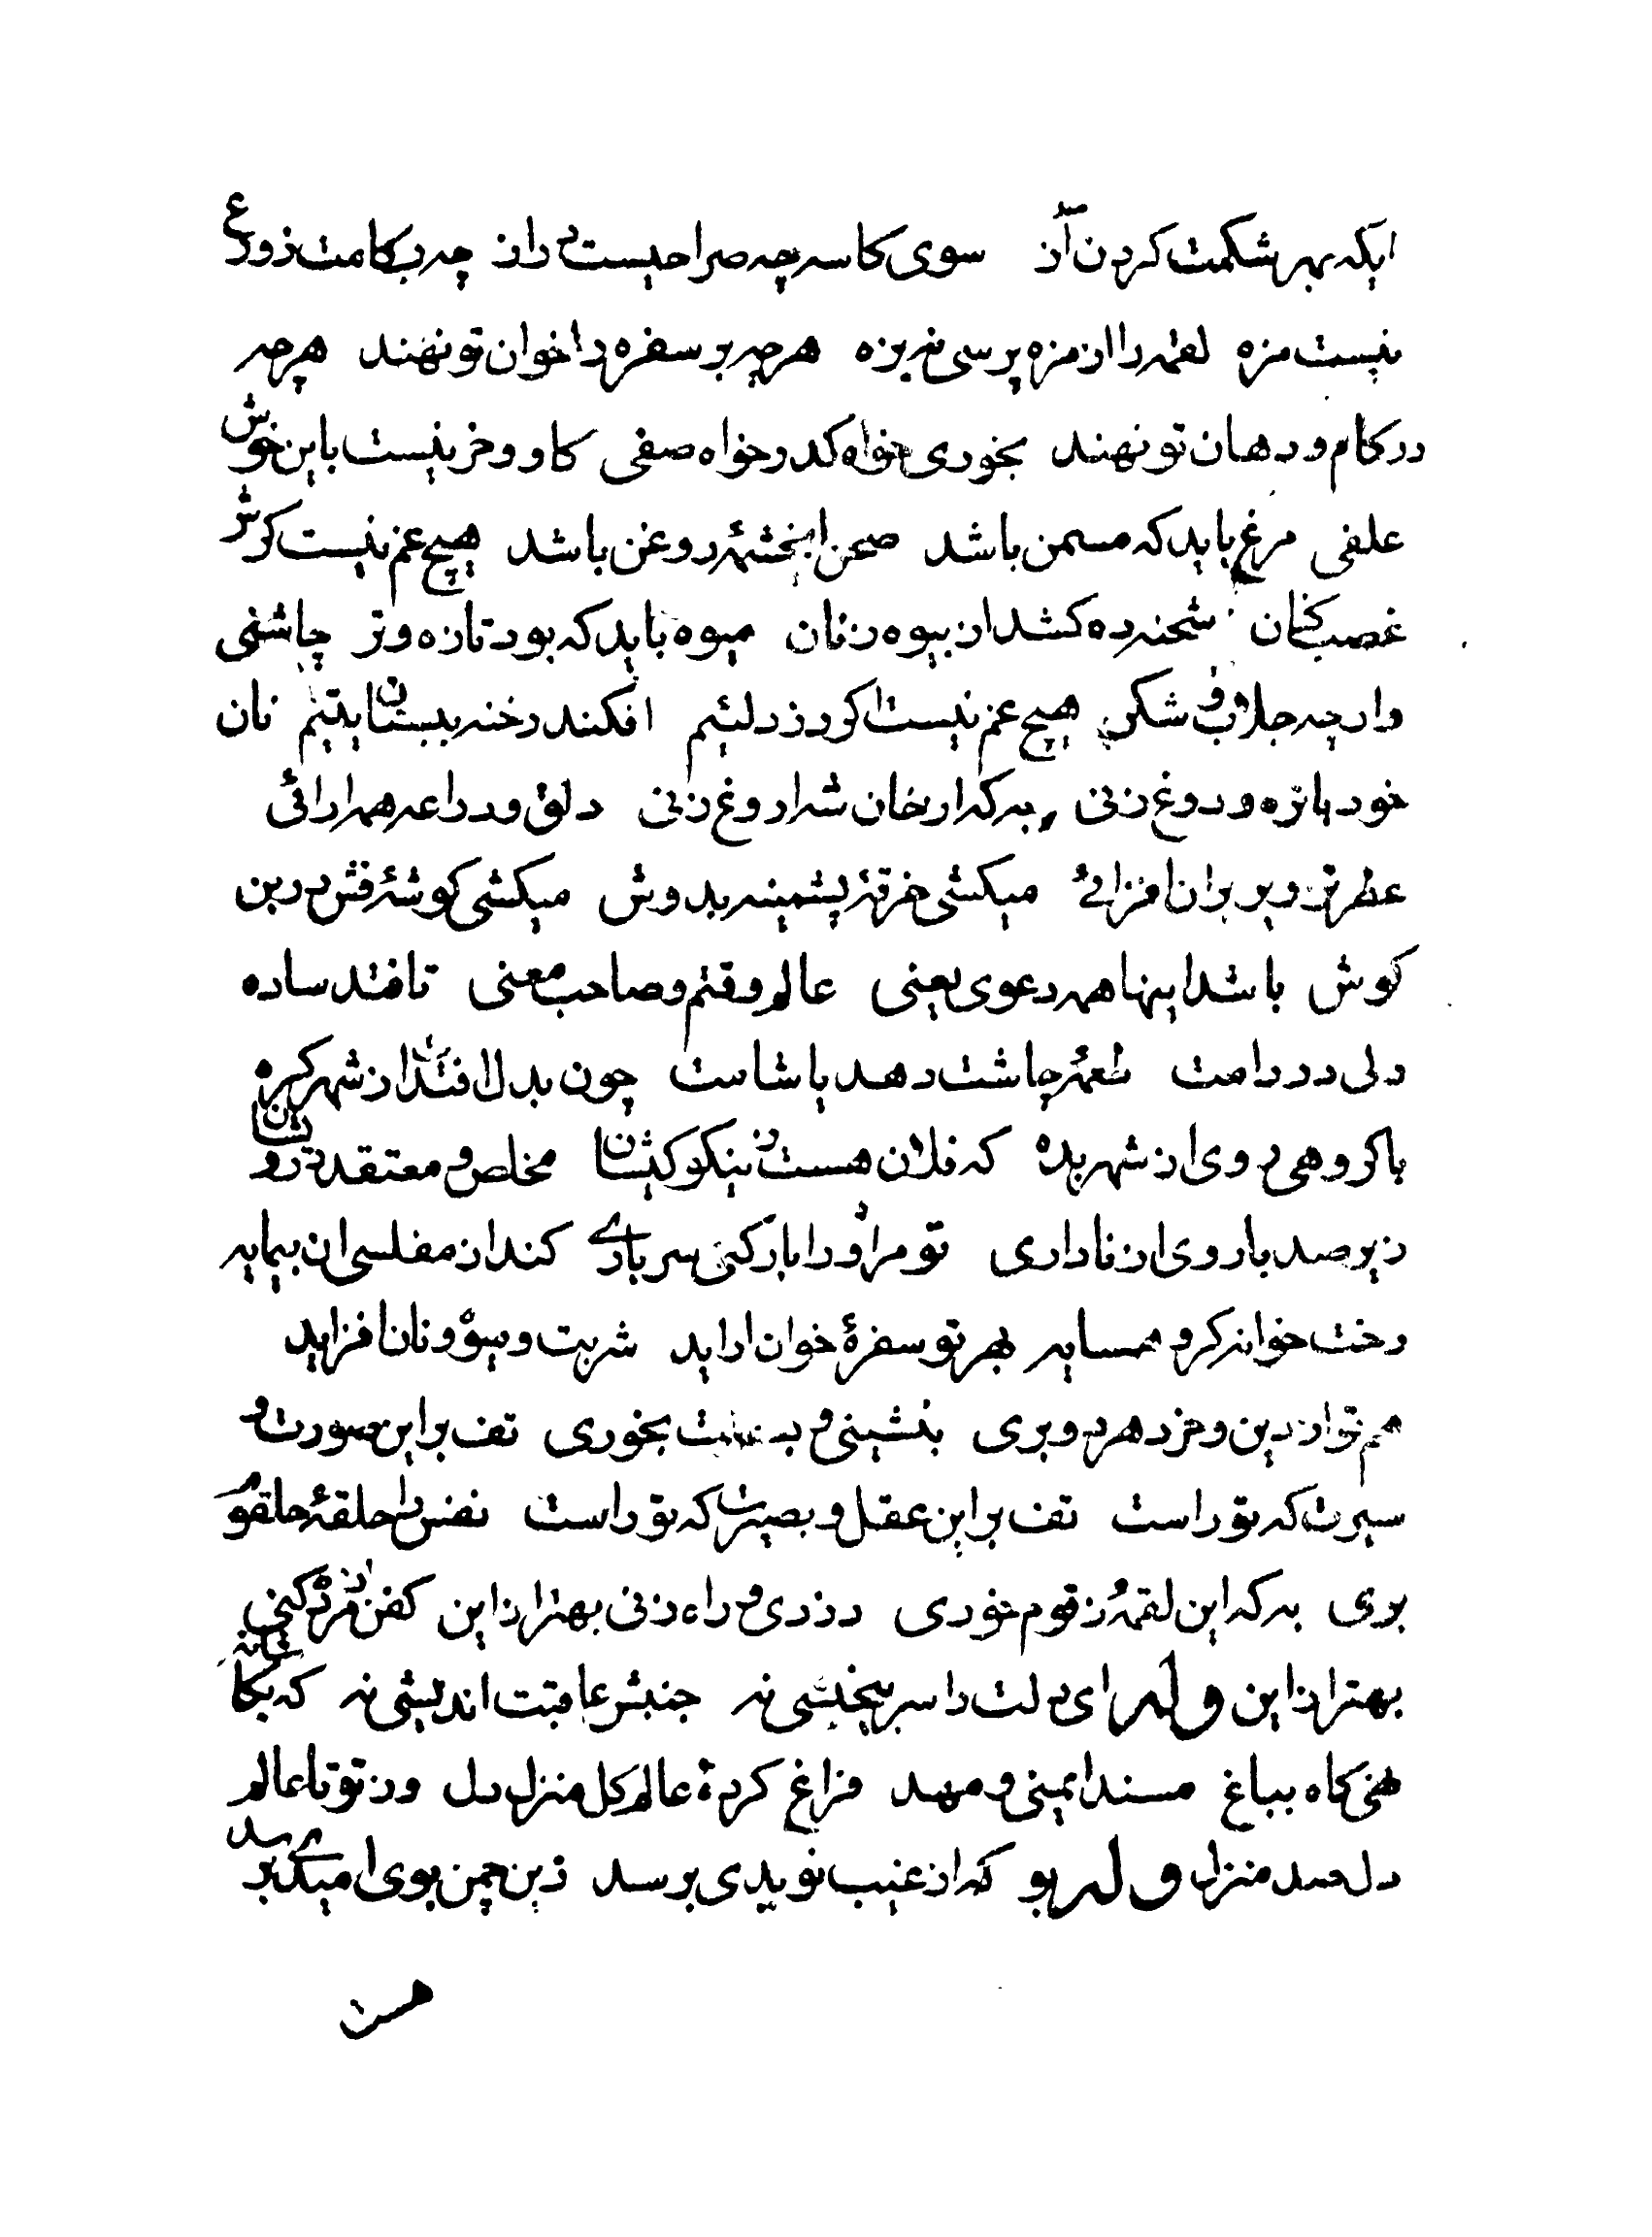 ایکه بهر شکمت کردن آز سوی کاسه چه صراحیست دراز چه بکامت ز ورع
نیست مزه لقمه را از مزه پرسی نه بزه هرچه بر سفره و اخوان تو نهند هرچه
در کام و دهان تو نهند بخوری خواه کدر خواه صفی کاو و خر نیست باین خوش
علفی مرغ باید که مسمن باشد صحن روغن باشد هیچ غم نیست کرش
غصب کنان شحنه ده کشد از بیوه زنان میوه باید که بود تازه و تر چاشنی
وار چه جلاب و شکر هیچ غم نیست اکر دزد لئیم افکند رخنه ببستان یتیم نان
خود با تره و دوغ زنی به که از خان شه اروغ زنی دلق و دراعه همه ارائی
عطر تزویر بران افزائی میکشی خرقهٔ پشمینه بدوش میکشی کوشهٔ فش در بن
کوش باشد اینها همه دعوی یعنی عالم وقتم و صاحب معنی تا فتد ساده
دلی در دامت طعمهٔ چاشت دهد یا شامت چون بدل افتدت از شهر کره
با کروهی روی از شهر بده که فلان هست ز نیکو کیشان مخلص و معتقد درویشان
زیر صد بار وی از ناداری تو مر او را بار کنی سرباری کند از مفلسی ان بیمایه
رخت خوانه کرو همسایه بهر تو سفرهٔ خوان اراید شربت و میوه و نان افزاید
هم تو از دین و خرد هر دو بری بنشینی و بخوری تف بر این صورت و
سیرت که تو راست تف بر این عقل و بصیرت که تو راست نفس را حلقهٔ حلقوم
بری به که این لقمهٔ زقوم خوری دزدی و راه زنی بهتر از این کفن از مرده کنی
بهتر از این وله ای دلت را سر بیخیشی نه جنبش عاقبت اندیشی نه که بکاشانه
نهی کاه بباغ مسند ایمنی و مهد فراغ کردهٔ عالم کل منزل دل وز تو تا عالم
دل صد منزل وله بو که از غیب نویدی برسد زین چمن بوی امیدی برسد